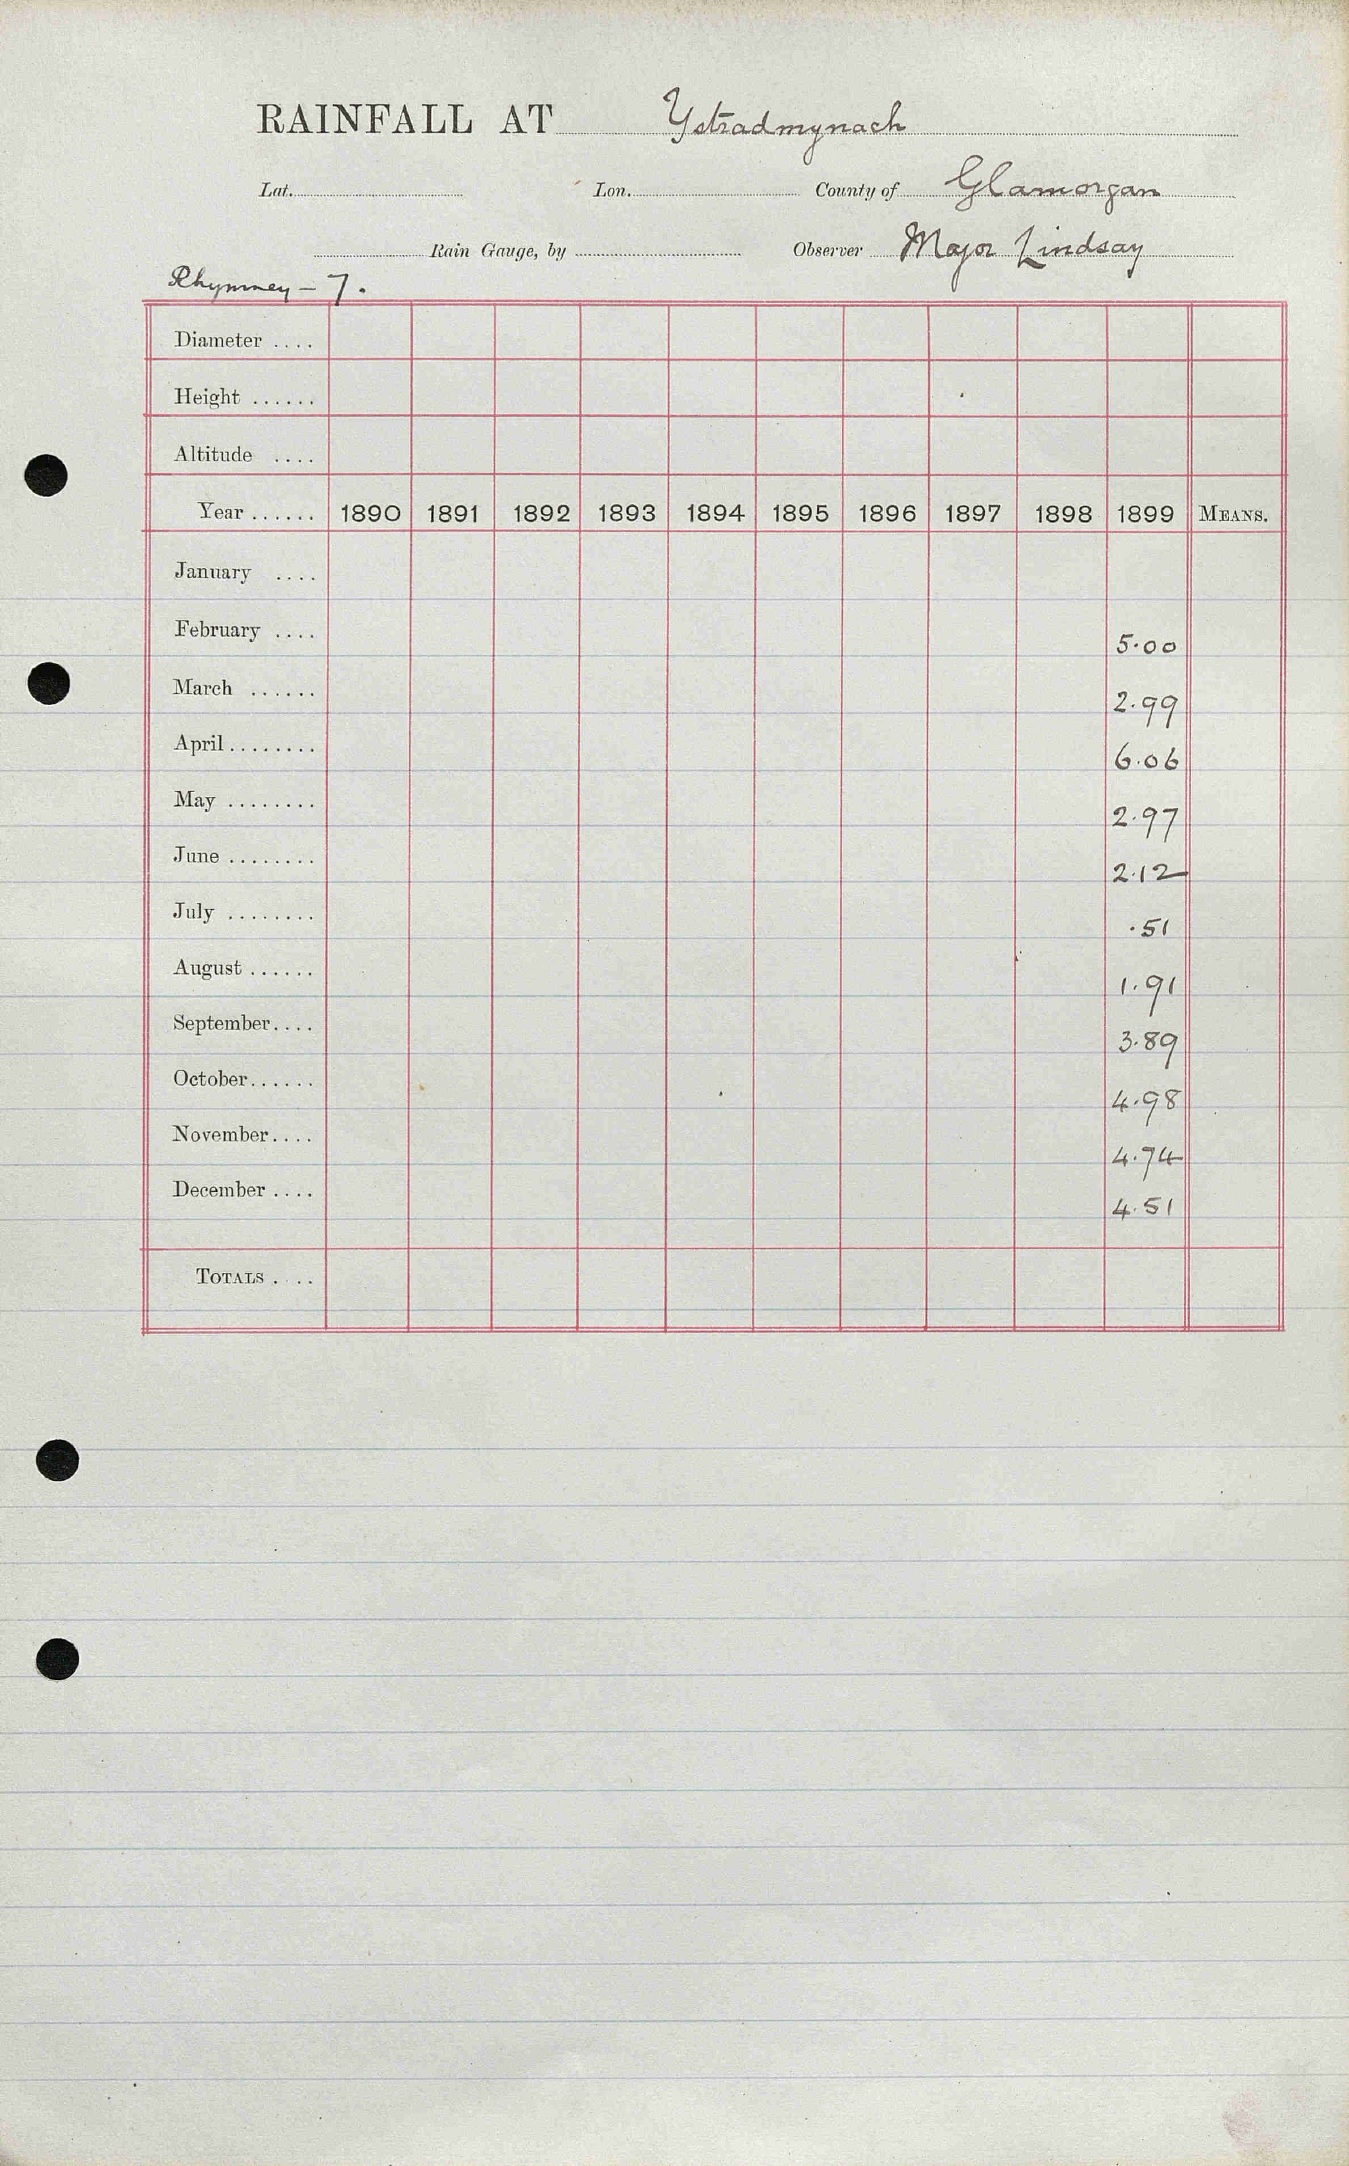 RAINFALL AT Ystradmynach
Lat. Lon. County of Glamorgan
Rain Gauge, by Observer Major Lindsay
Rhymney – 7.
Diameter ....
Height ......
Altitude ....
Year ...... 1890 1891 1892 1893 1894 1895 1896 1897 1898 1899 MEANS.
January ....
February .... 5.00
March ...... 2.99
April ........ 6.06
May ........ 2.97
June ........ 2.12
July ........ .51
August ...... 1.91
September.... 3.89
October...... 4.98
November.... 4.74
December .... 4.51
TOTALS ....